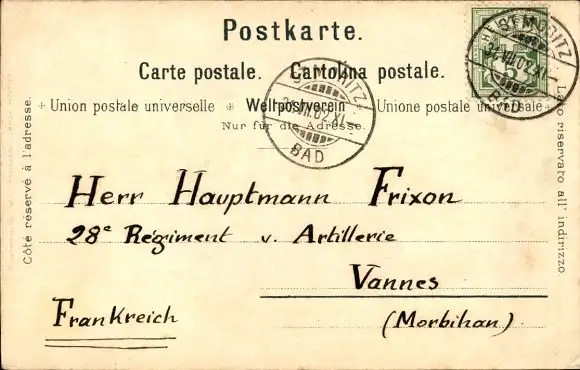 Postkarte.
Carte postale. Cartolina postale.
Union postale universelle * Weltpostverein * Unione postale universale
Nur für die Adresse.
Côté réservé à l'adresse.
Lato riservato all' indirizzo
ST. MORITZ
BAD
ST. MORITZ
BAD
Herr Hauptmann Frixon
28e Régiment v. Artillerie
Vannes
(Morbihan)
Frankreich